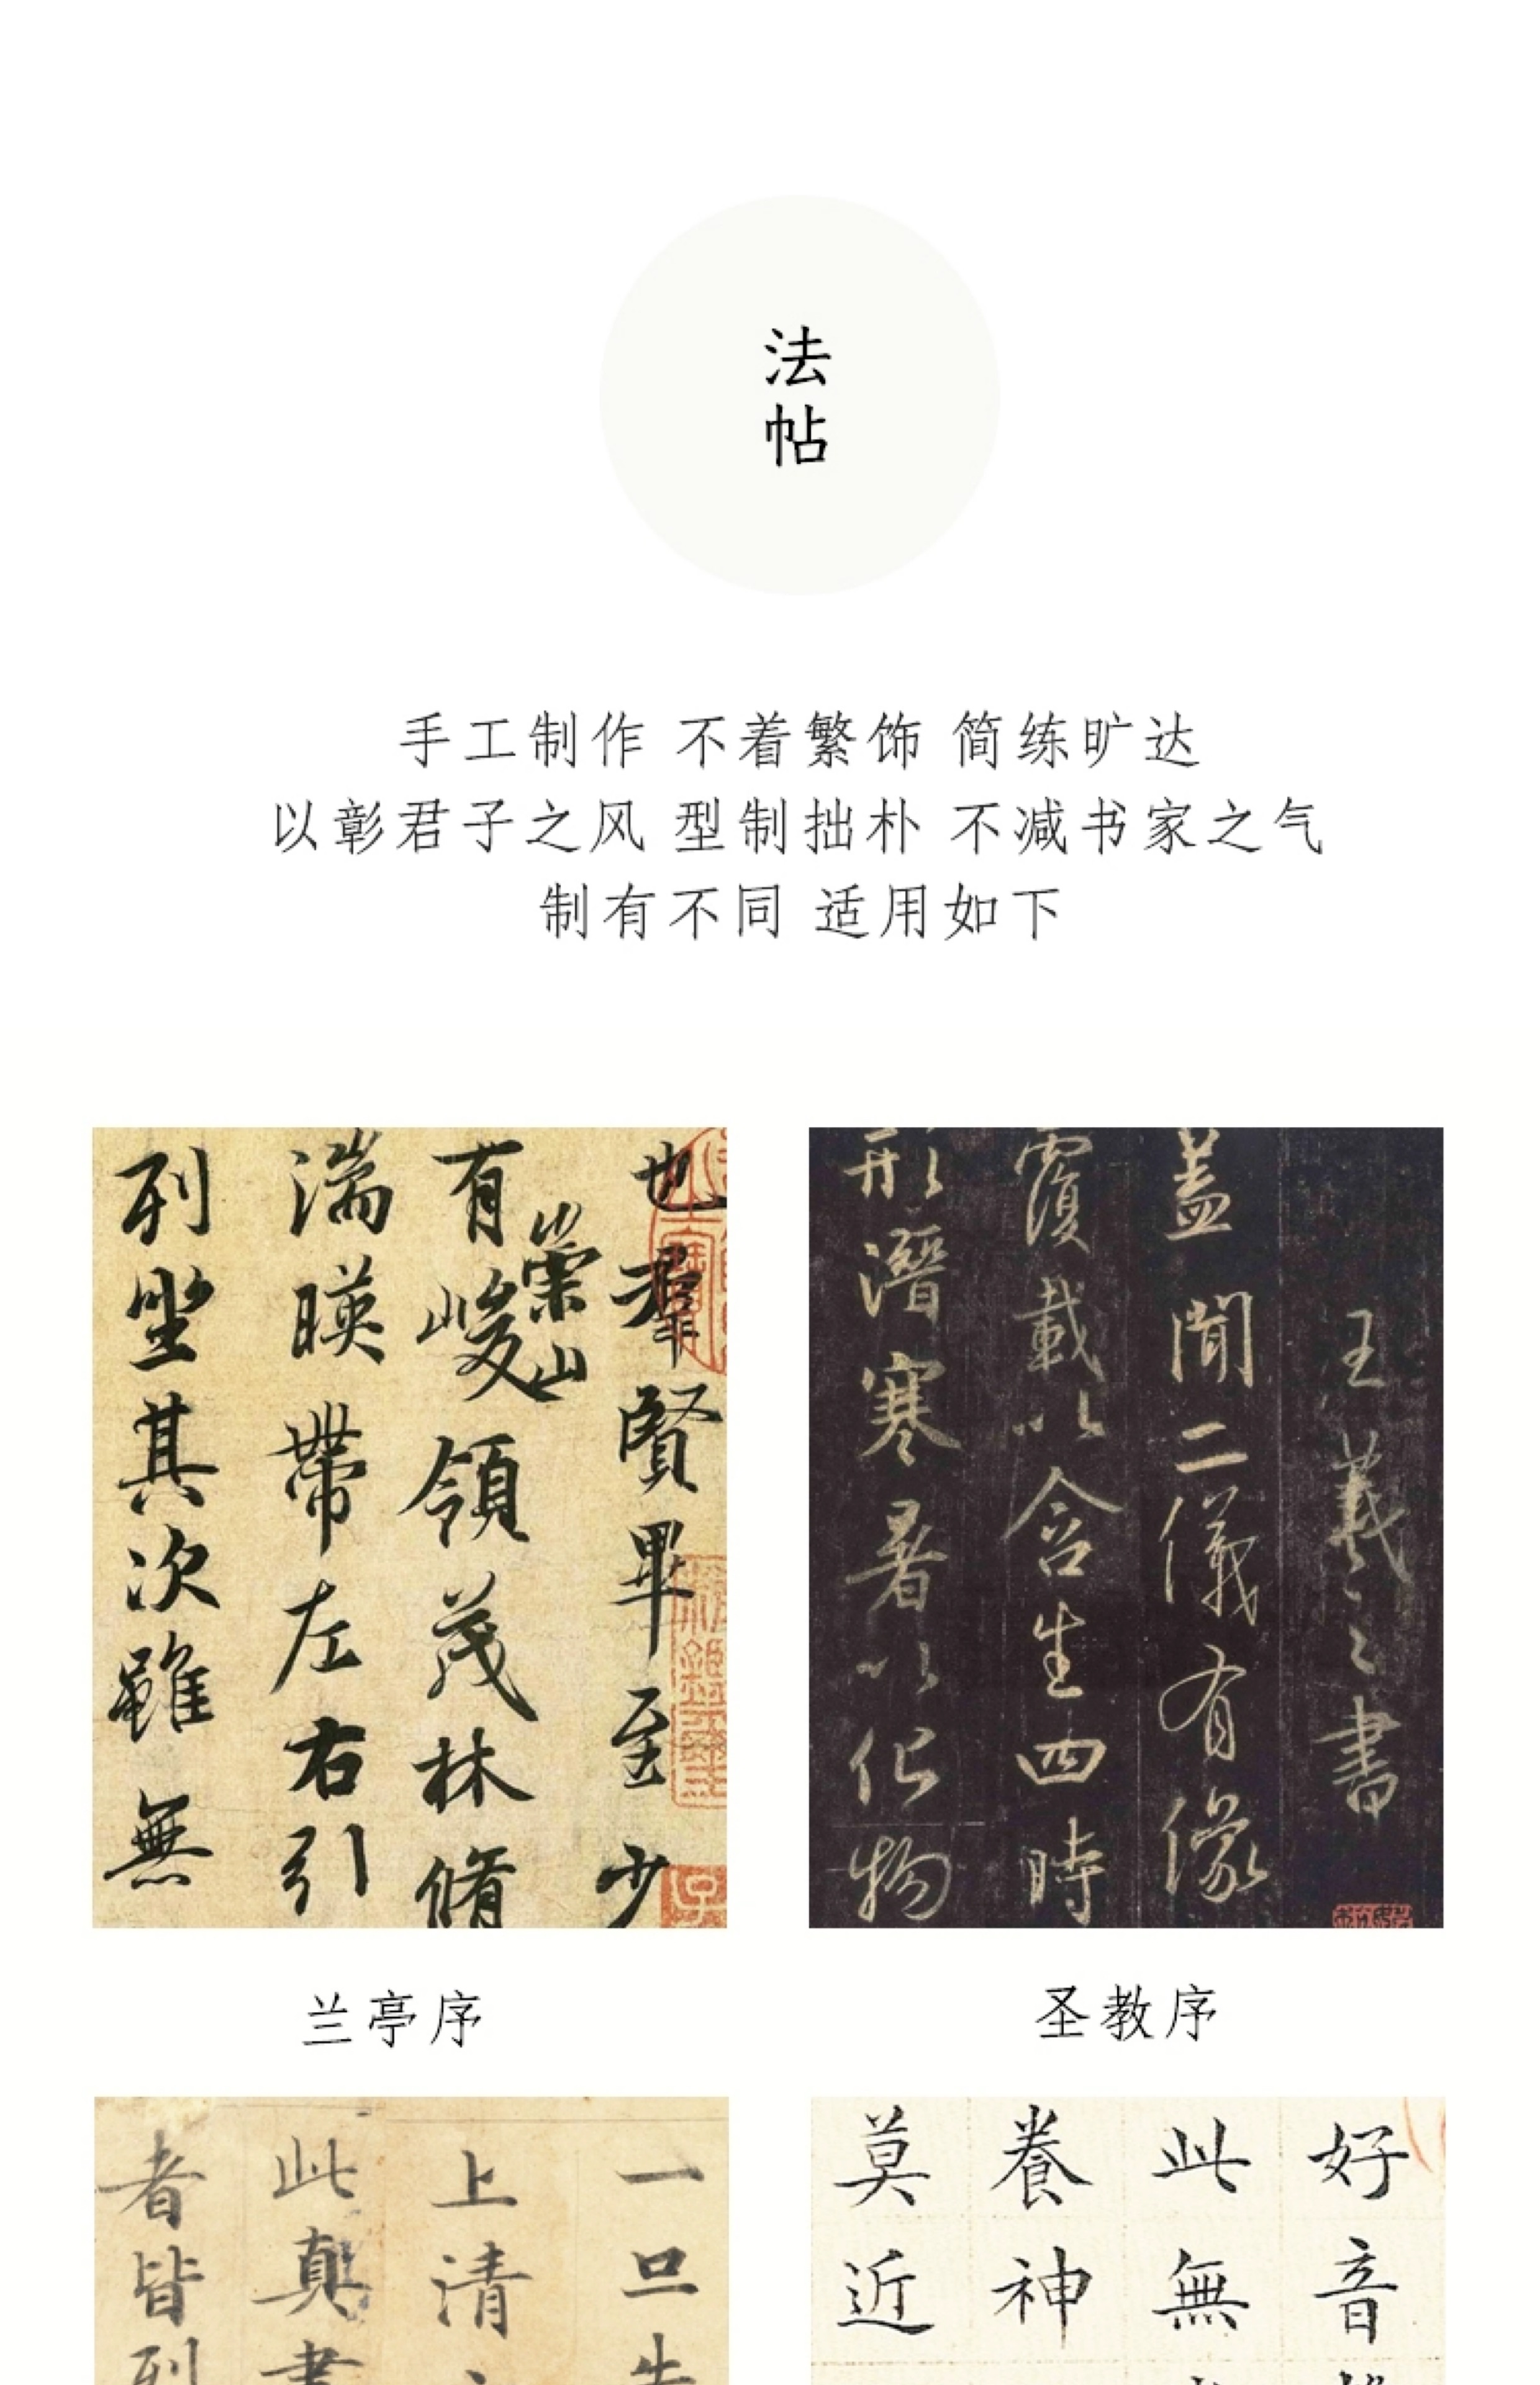 法
帖
手工制作 不着繁饰 简练旷达
以彰君子之风 型制拙朴 不减书家之气
制有不同 适用如下
也羣賢畢至少
有峻領茂林脩
崇山
湍暎帶左右引
列坐其次雖無
王羲之書
蓋聞二儀有像
覆載以含生四時
形潛寒暑以化物
兰亭序
圣教序
一旦
上清
此真書
者皆列
好音
此無
養神
莫近